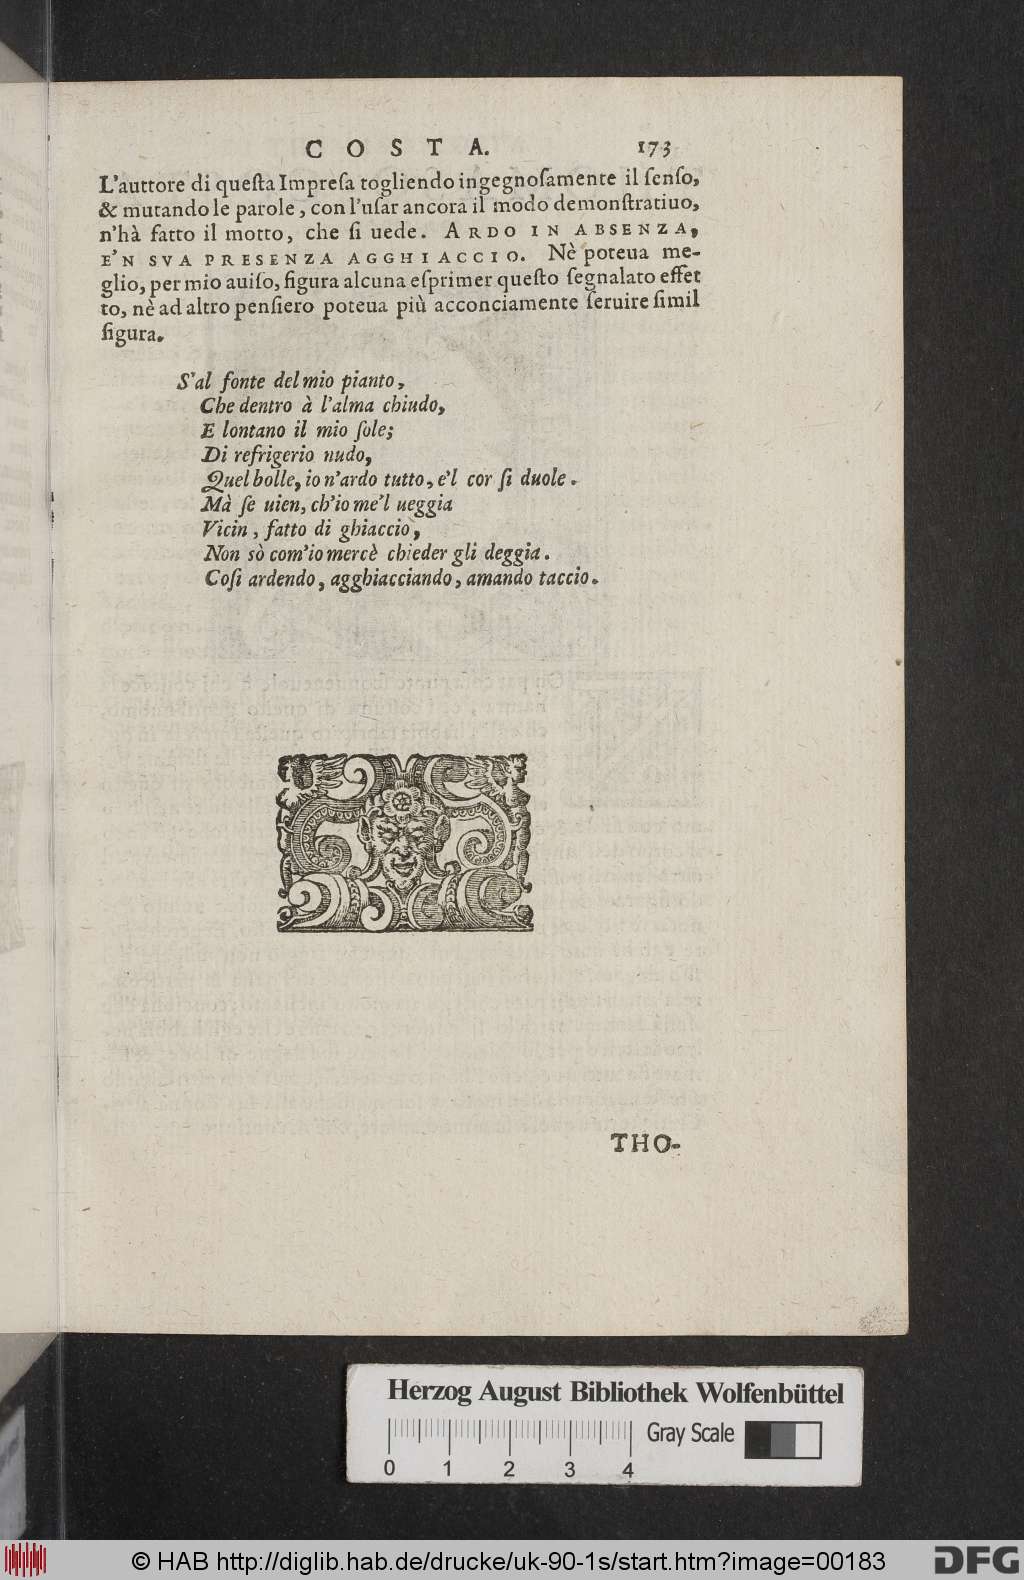 COSTA. 173
L'auttore di queſta Impreſa togliendo ingegnoſamente il ſenſo,
& mutando le parole, con l'uſar ancora il modo demonſtratiuo,
n'hà fatto il motto, che ſi uede. ARDO IN ABSENZA,
E'N SVA PRESENZA AGGHIACCIO. Nè poteua me-
glio, per mio auiſo, figura alcuna eſprimer queſto ſegnalato effet
to, nè ad altro penſiero poteua più acconciamente ſeruire ſimil
figura.
S'al fonte del mio pianto,
Che dentro à l'alma chiudo,
E lontano il mio ſole;
Di refrigerio nudo,
Quel bolle, io n'ardo tutto, e'l cor ſi duole.
Mà ſe uien, ch'io me'l ueggia
Vicin, fatto di ghiaccio,
Non sò com'io mercè chieder gli deggia.
Coſi ardendo, agghiacciando, amando taccio.
THO-
Herzog August Bibliothek Wolfenbüttel
Gray Scale
0 1 2 3 4
© HAB http://diglib.hab.de/drucke/uk-90-1s/start.htm?image=00183
DFG